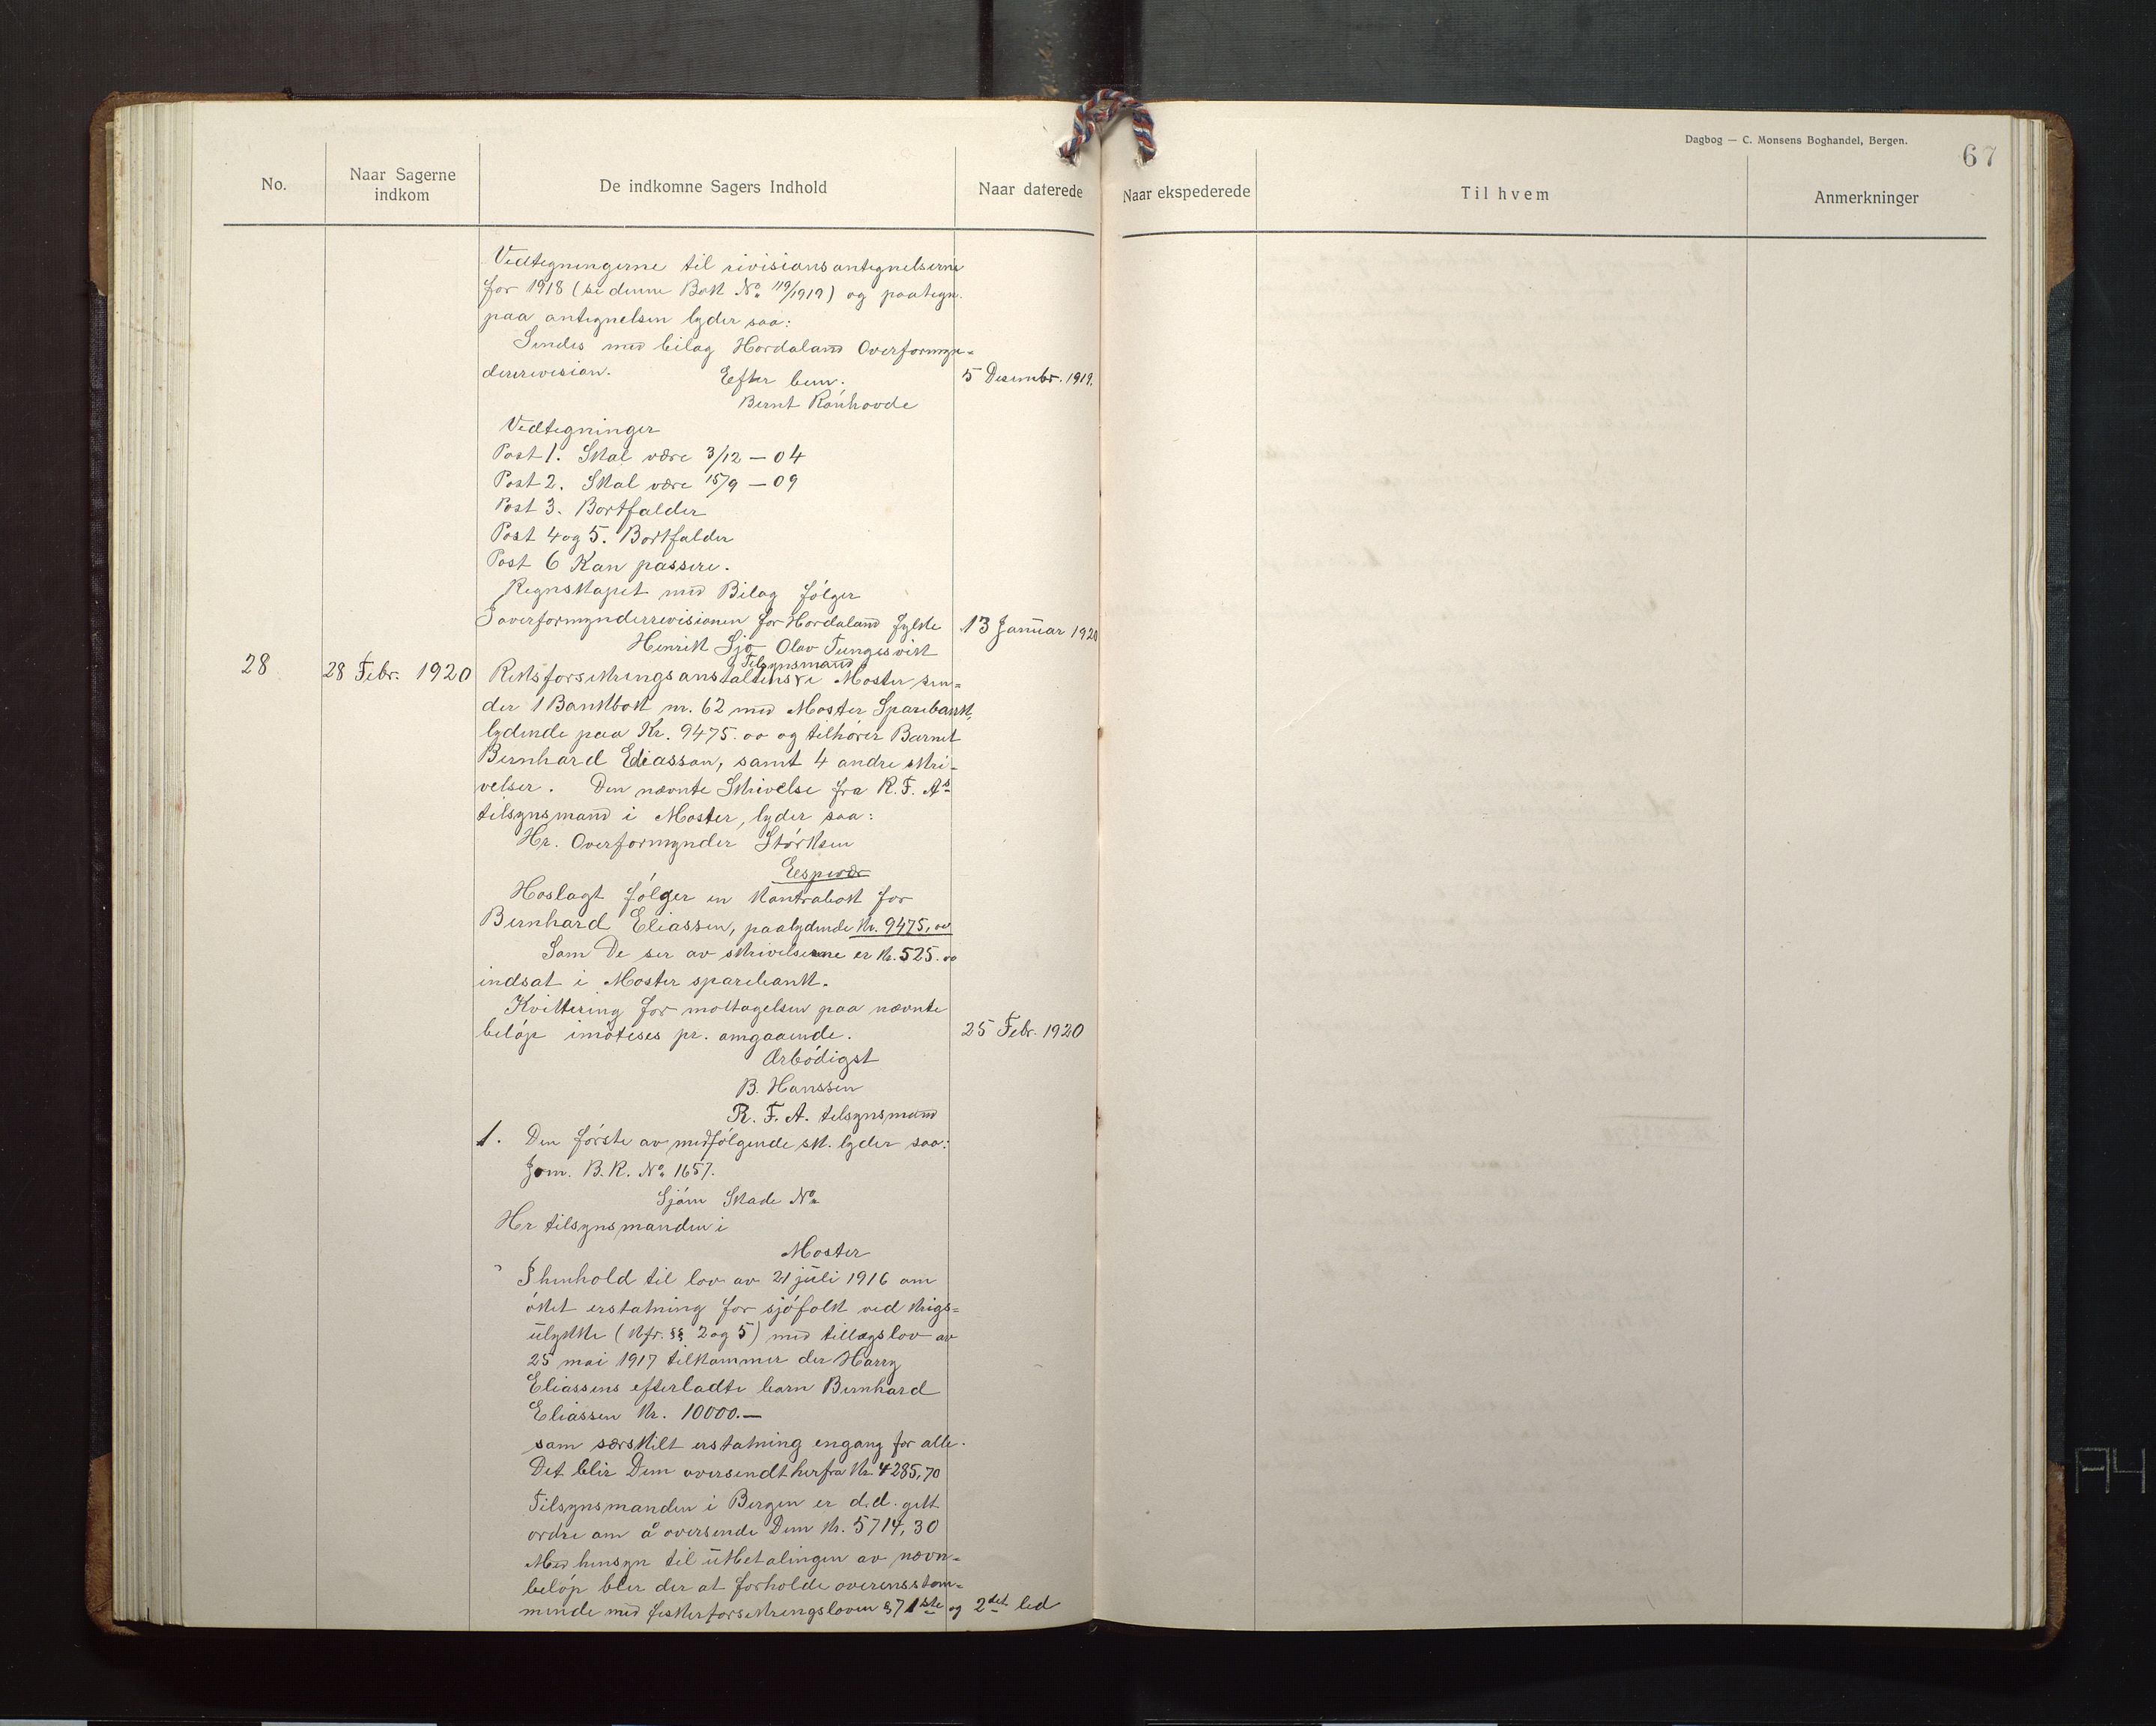 Dagbog — C. Monsens Boghandel, Bergen.
67
No.
Naar Sagerne indkom
De indkomne Sagers Indhold
Naar daterede
Naar ekspederede
Til hvem
Anmerkninger
Vedtegningerne til rivisionsantegnelserne
for 1918 (se denne Bok No 119/1919) og paategn.
paa antegnelsen lyder saa:
Sendes med bilag Hordaland Overformyn=
derrevision.
Efter bem.
5 Desembr. 1919.
Bernt Rönhovde
Vedtegninger
Post 1. Skal være 3/12 — 04
Post 2. Skal være 15/9 — 09
Post 3. Bortfalder
Post 4 og 5. Bortfalder
Post 6 Kan passere.
Regnskapet med Bilag fölger
I overformynderrevisionen for Hordaland fylke
13 Januar 1920
Henrik Sjo Olav Tungesvik
28
28 Febr. 1920
Tilsynsmand
Riksforsikringsanstaltens i Moster sen=
der 1 Bankbok nr. 62 med Moster Sparebank,
lydende paa Kr. 9475.00 og tilhörer Barnet
Bernhard Eliasson, samt 4 andre skri-
velser. Den nævnte Skrivelse fra R. F. As
tilsynsmand i Moster, lyder saa:
Hr. Overformynder Störksen
Espevær
Hoslagt fölger en Kontrabok for
Bernhard Eliassen, paalydende Kr. 9475,00
Som De ser av skrivelserne er K. 525.00
indsat i Moster sparebank.
Kvittering for mottagelsen paa nævnte
belöp imöteses pr. omgaaende.
25 Febr. 1920
Ærbödigst
B. Hanssen
R. F. A. tilsynsmand
1. Den förste av medfölgende sk. lyder saa:
Jom. B. R. No 1657.
Sjöm Skade No
Hr tilsynsmanden i
Moster
I henhold til lov av 21 juli 1916 om
öket erstatning for sjöfolk ved krigs=
ulykke (Kfr. §§ 2 og 5) med tillægslov av
25 mai 1917 tilkommer der Harry
Eliassens efterladte barn Bernhard
Eliassen Kr. 10000.—
som særskilt erstatning engang for alle.
Det blir Dem oversendt herfra Kr. 4285,70
Tilsynsmanden i Bergen er d.d. gitt
ordre om å oversende Dem Kr. 5714,30
Med hensyn til utbetalingen av nævn=
belöp blir der at forholde overensstem=
mende med fiskerforsikringsloven § 7 1ste og 2det led